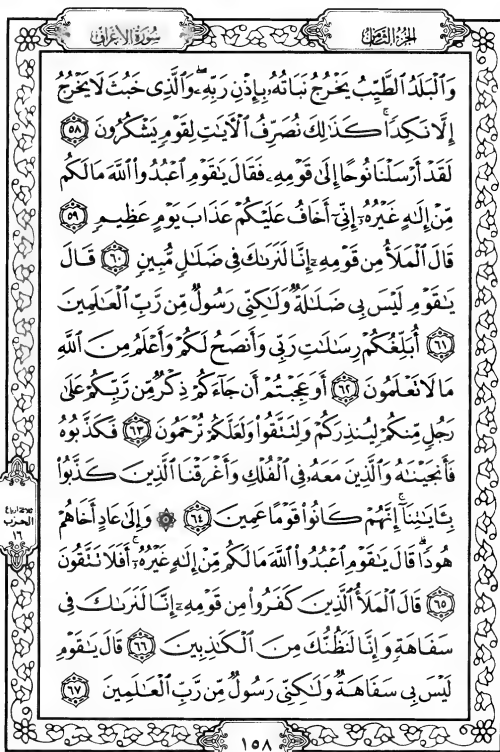 سُورَةُ الأَعْرَافِ
الجُزْءُ الثَّامِنُ
وَٱلْبَلَدُ ٱلطَّيِّبُ يَخْرُجُ نَبَاتُهُۥ بِإِذْنِ رَبِّهِۦۖ وَٱلَّذِى خَبُثَ لَا يَخْرُجُ
إِلَّا نَكِدًاۚ كَذَٰلِكَ نُصَرِّفُ ٱلْءَايَٰتِ لِقَوْمٍ يَشْكُرُونَ ٥٨
لَقَدْ أَرْسَلْنَا نُوحًا إِلَىٰ قَوْمِهِۦ فَقَالَ يَٰقَوْمِ ٱعْبُدُوا۟ ٱللَّهَ مَا لَكُم
مِّنْ إِلَٰهٍ غَيْرُهُۥٓ إِنِّىٓ أَخَافُ عَلَيْكُمْ عَذَابَ يَوْمٍ عَظِيمٍ ٥٩
قَالَ ٱلْمَلَأُ مِن قَوْمِهِۦٓ إِنَّا لَنَرَىٰكَ فِى ضَلَٰلٍ مُّبِينٍ ٦٠ قَالَ
يَٰقَوْمِ لَيْسَ بِى ضَلَٰلَةٌ وَلَٰكِنِّى رَسُولٌ مِّن رَّبِّ ٱلْعَٰلَمِينَ
٦١ أُبَلِّغُكُمْ رِسَٰلَٰتِ رَبِّى وَأَنصَحُ لَكُمْ وَأَعْلَمُ مِنَ ٱللَّهِ
مَا لَا تَعْلَمُونَ ٦٢ أَوَعَجِبْتُمْ أَن جَآءَكُمْ ذِكْرٌ مِّن رَّبِّكُمْ عَلَىٰ
رَجُلٍ مِّنكُمْ لِيُنذِرَكُمْ وَلِتَتَّقُوا۟ وَلَعَلَّكُمْ تُرْحَمُونَ ٦٣ فَكَذَّبُوهُ
فَأَنجَيْنَٰهُ وَٱلَّذِينَ مَعَهُۥ فِى ٱلْفُلْكِ وَأَغْرَقْنَا ٱلَّذِينَ كَذَّبُوا۟
بِـَٔايَٰتِنَآۚ إِنَّهُمْ كَانُوا۟ قَوْمًا عَمِينَ ٦٤ ۞ وَإِلَىٰ عَادٍ أَخَاهُمْ
هُودًاۗ قَالَ يَٰقَوْمِ ٱعْبُدُوا۟ ٱللَّهَ مَا لَكُم مِّنْ إِلَٰهٍ غَيْرُهُۥٓۚ أَفَلَا تَتَّقُونَ
٦٥ قَالَ ٱلْمَلَأُ ٱلَّذِينَ كَفَرُوا۟ مِن قَوْمِهِۦٓ إِنَّا لَنَرَىٰكَ فِى
سَفَاهَةٍ وَإِنَّا لَنَظُنُّكَ مِنَ ٱلْكَٰذِبِينَ ٦٦ قَالَ يَٰقَوْمِ
لَيْسَ بِى سَفَاهَةٌ وَلَٰكِنِّى رَسُولٌ مِّن رَّبِّ ٱلْعَٰلَمِينَ ٦٧
الحزب
١٦
١٥٨